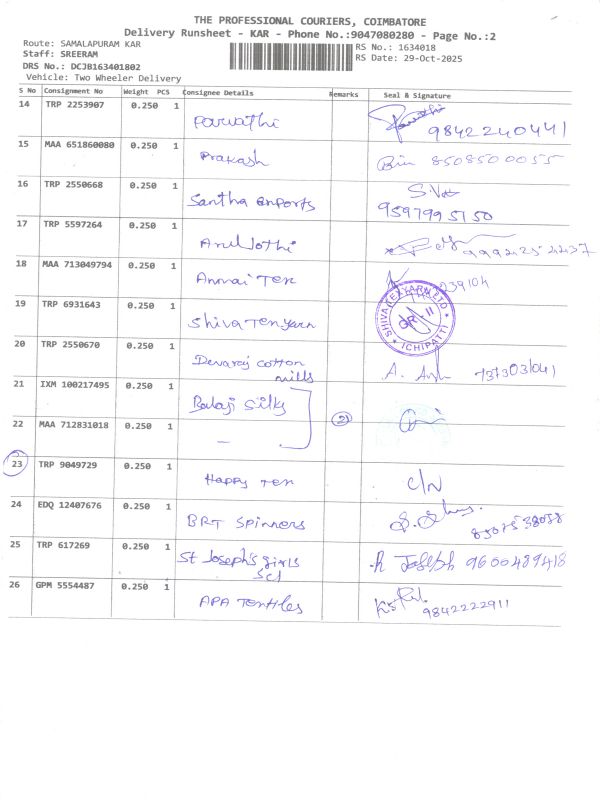 THE PROFESSIONAL COURIERS, COIMBATORE
Delivery Runsheet - KAR - Phone No.:9047080280 - Page No.:2
Route: SAMALAPURAM KAR RS No.: 1634018
Staff: SREERAM RS Date: 29-Oct-2025
DRS No.: DCJB163401802
Vehicle: Two Wheeler Delivery
S No Consignment No Weight PCS Consignee Details Remarks Seal & Signature
14 TRP 2253907 0.250 1 Parvathi 9842240441
15 MAA 651860080 0.250 1 Prakash 8508500055
16 TRP 2550668 0.250 1 Santha exports 9597995150
17 TRP 5597264 0.250 1 Anul Jothi
18 MAA 713049794 0.250 1 Annai Tex
19 TRP 6931643 0.250 1 Shiva Tex yarn SHIVA TEXYARN LTD GR-II ICHIPATTI
20 TRP 2550670 0.250 1 Devaraj cotton mills
21 IXM 100217495 0.250 1 Balaji Silky 2
22 MAA 712831018 0.250 1 -
23 TRP 9049729 0.250 1 Happy Tex C/N
24 EDQ 12407676 0.250 1 BRT Spinners
25 TRP 617269 0.250 1 St Joseph's girls Scl Joseph 9600489418
26 GPM 5554487 0.250 1 APA Textiles 9842222911